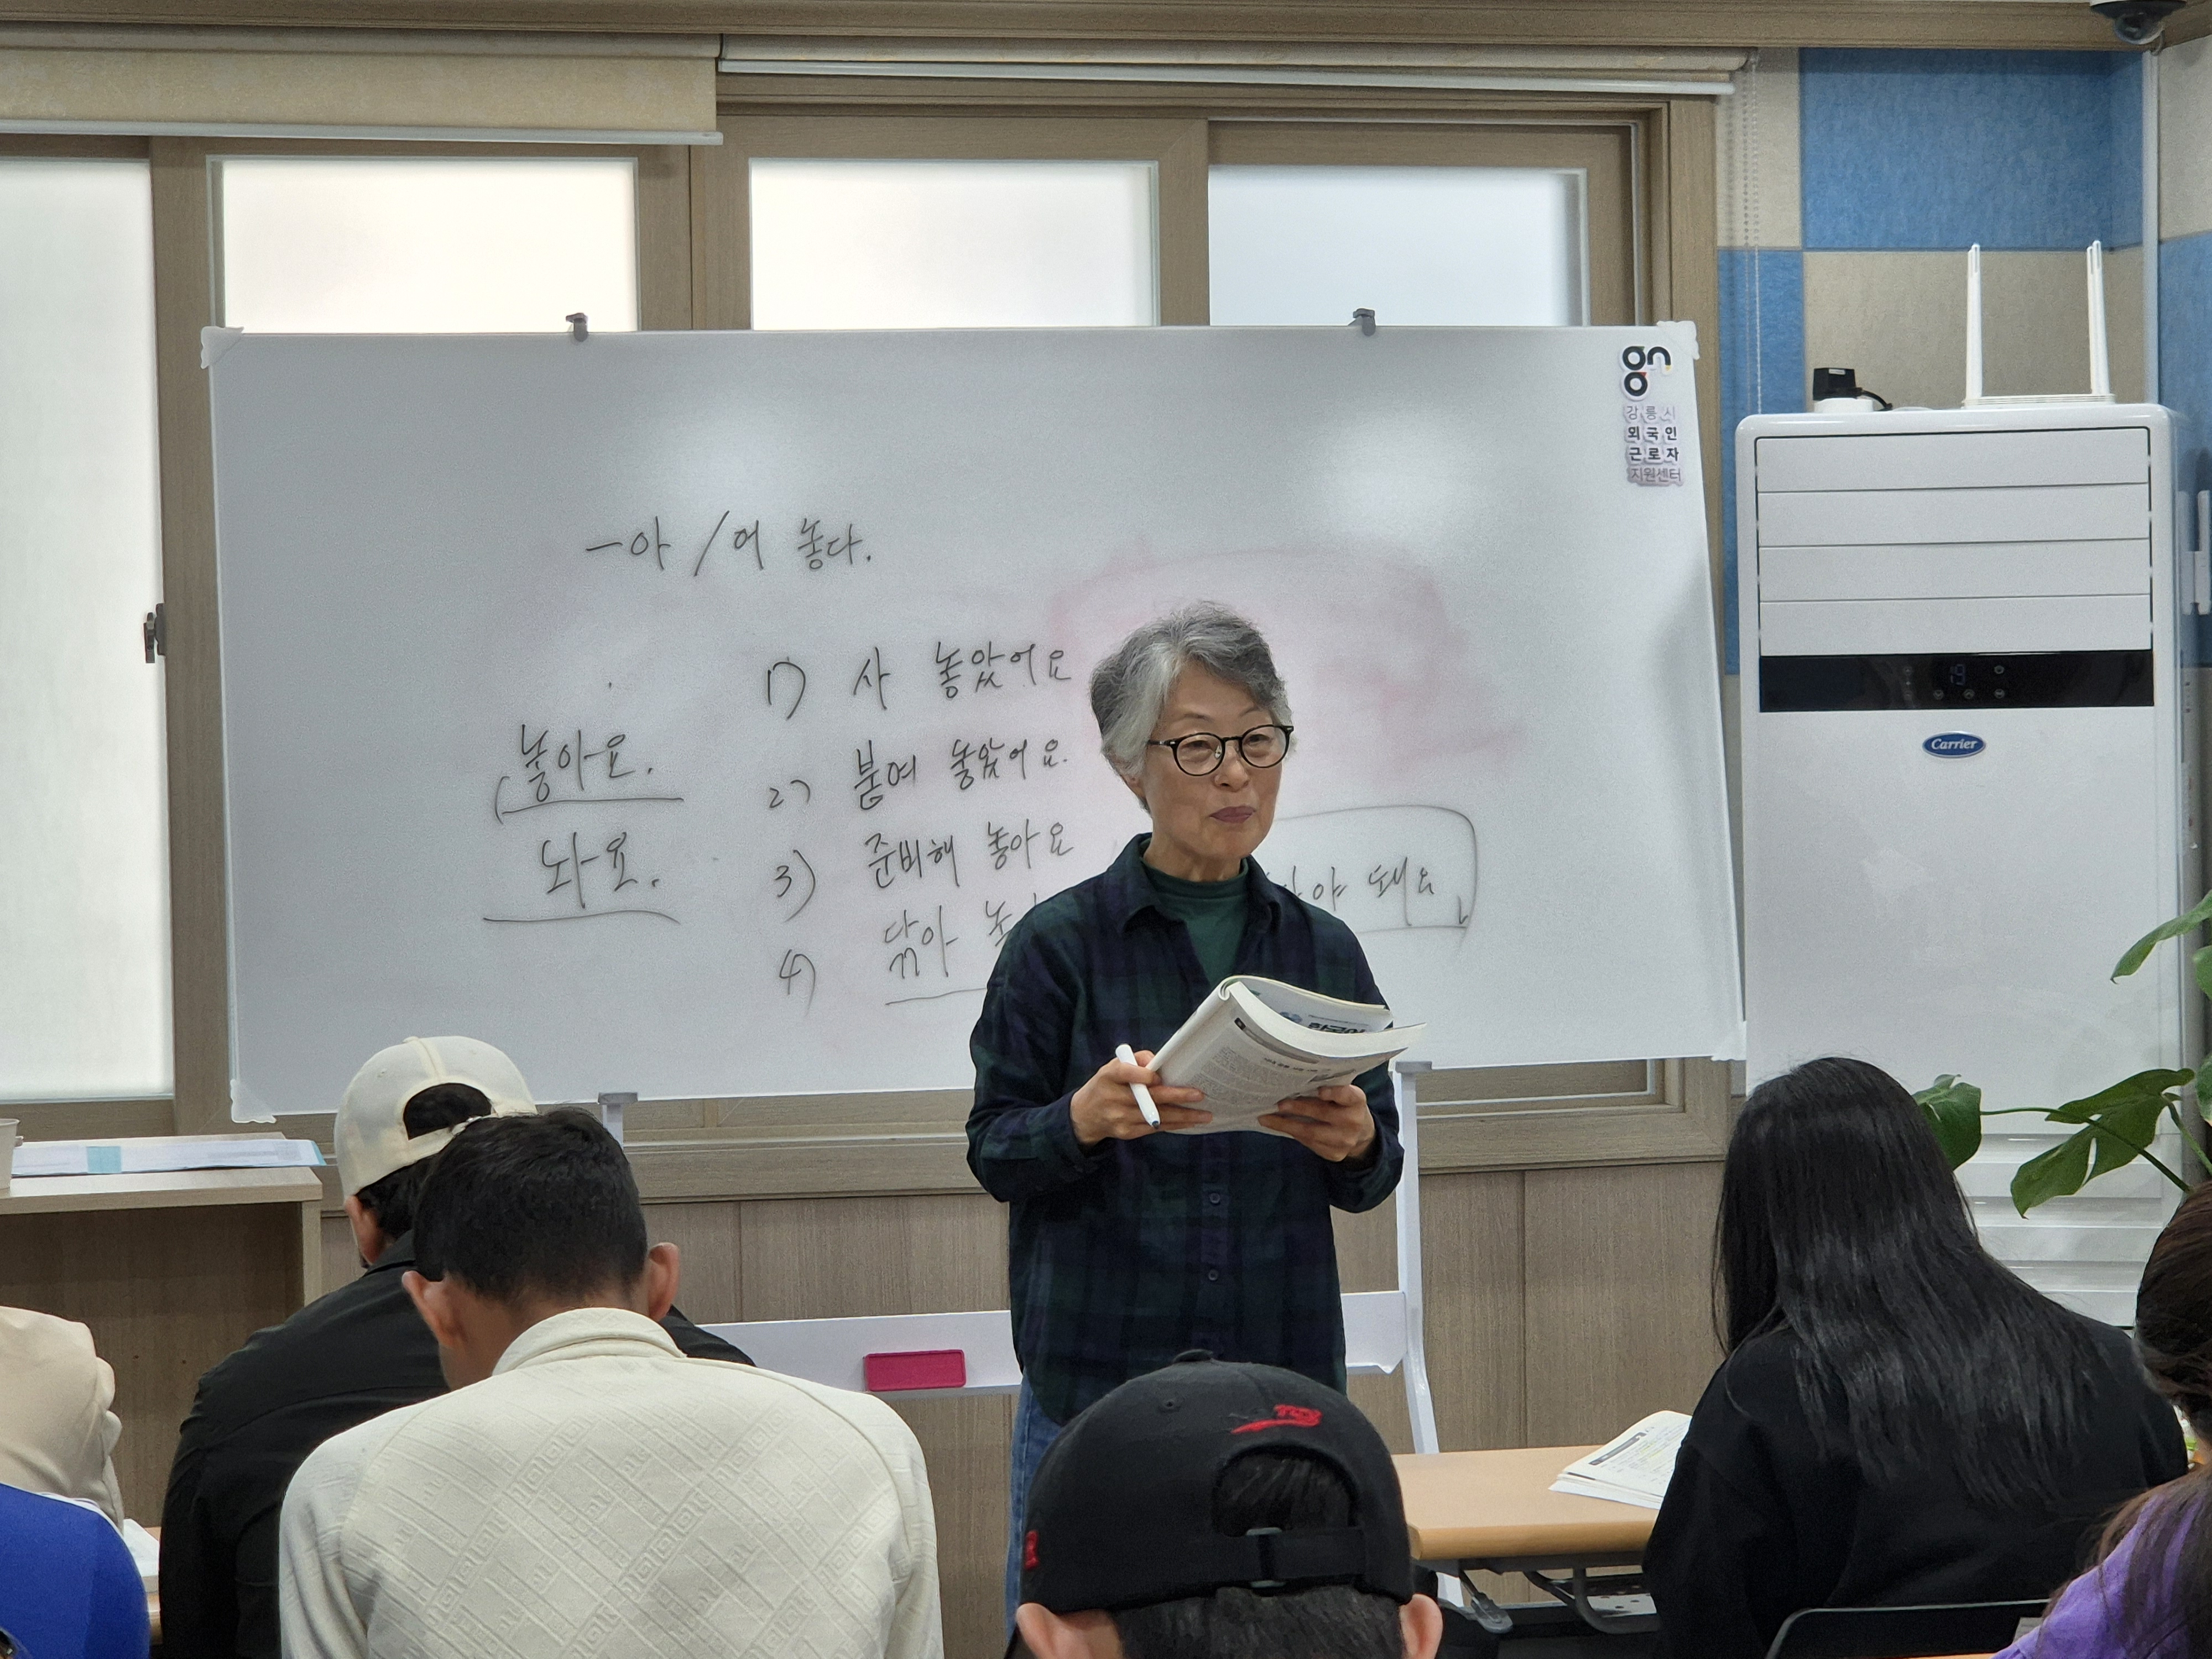 gn
강릉시
외국인
근로자
지원센터
-아/어 놓다.
1) 사 놓았어요
2) 붙여 놓았어요.
3) 준비해 놓아요
4) 닦아
놓아요.
놔요.
야 돼요
19
Carrier
한국어